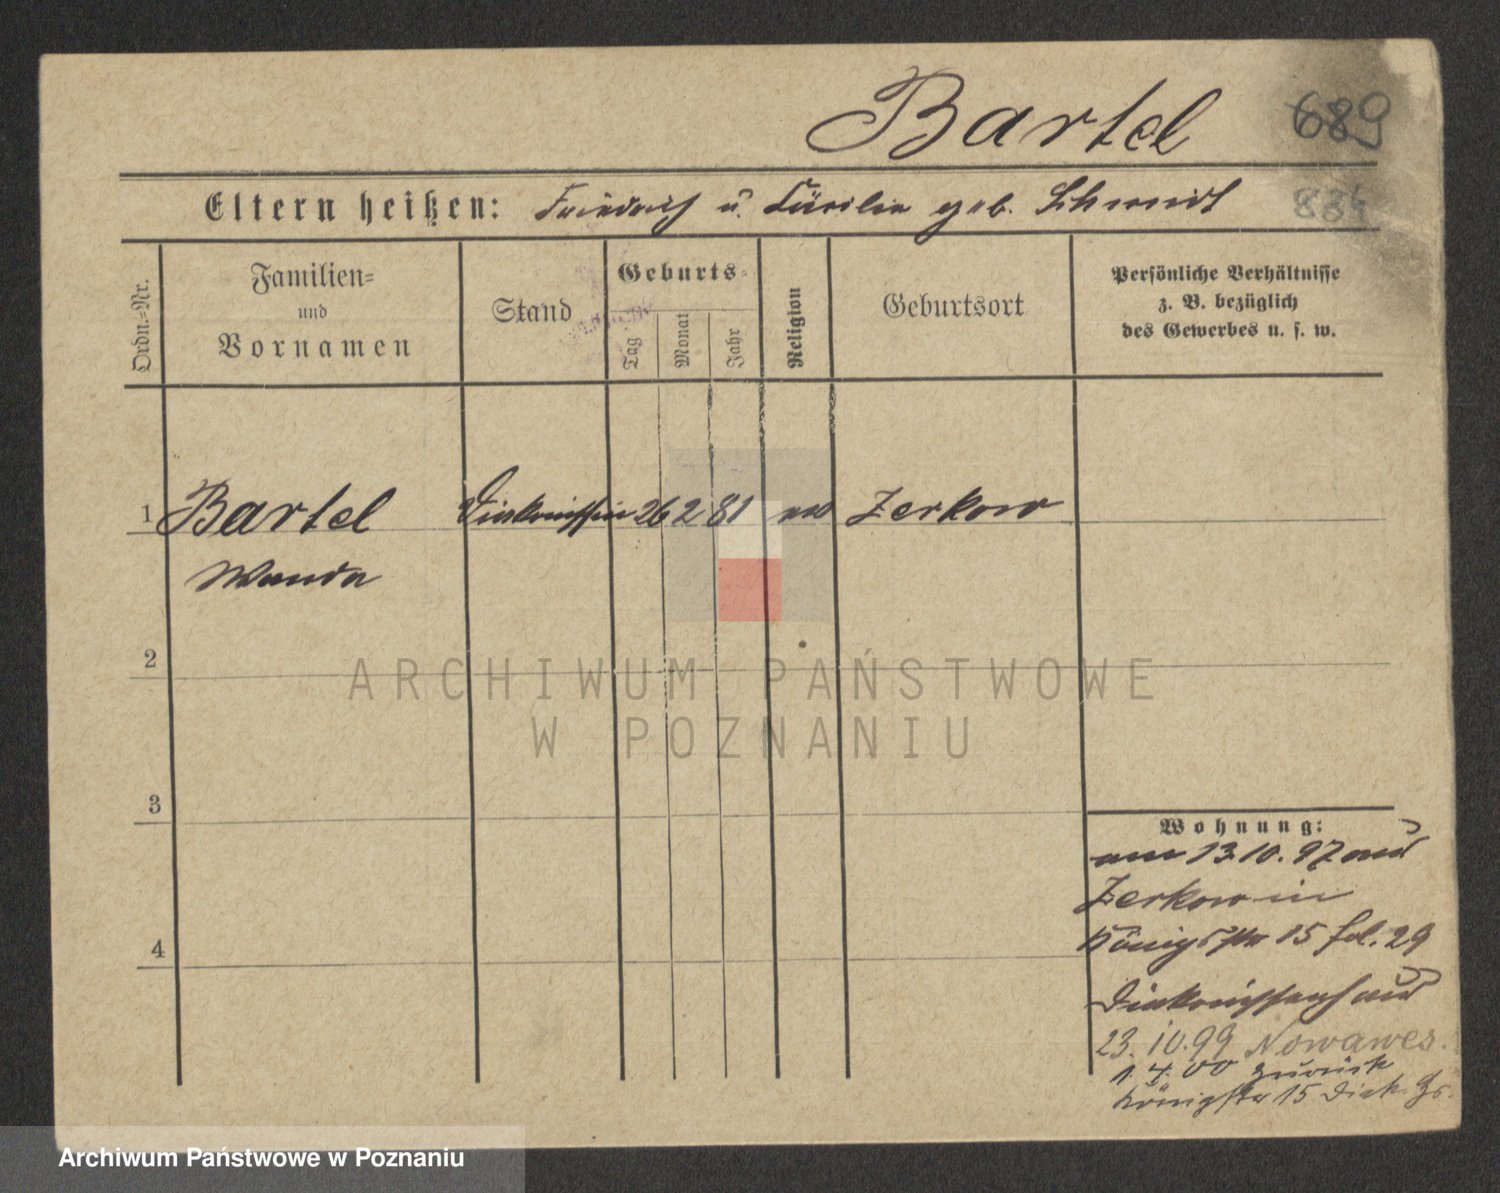 Bartel 689
Eltern heißen: Friedrich u. Cäcilie geb. Schmidt 834
Ordn.=Nr.
Familien=
und
Vornamen
Stand
Geburts=
Tag
Monat
Jahr
Religion
Geburtsort
Persönliche Verhältnisse
z. B. bezüglich
des Gewerbes u. s. w.
1 Bartel Diakonissin 26 2 81 ev Zerkow
Wanda
2
ARCHIWUM PAŃSTWOWE
W POZNANIU
3
Wohnung:
am 13.10.97 aus
Zerkow in
Königstr 15 fol. 29
4
Diakonissenh aus
23. 10. 99 Nowawes.
1. 4. 00 zurück
Königstr 15 Diak.
Archiwum Państwowe w Poznaniu